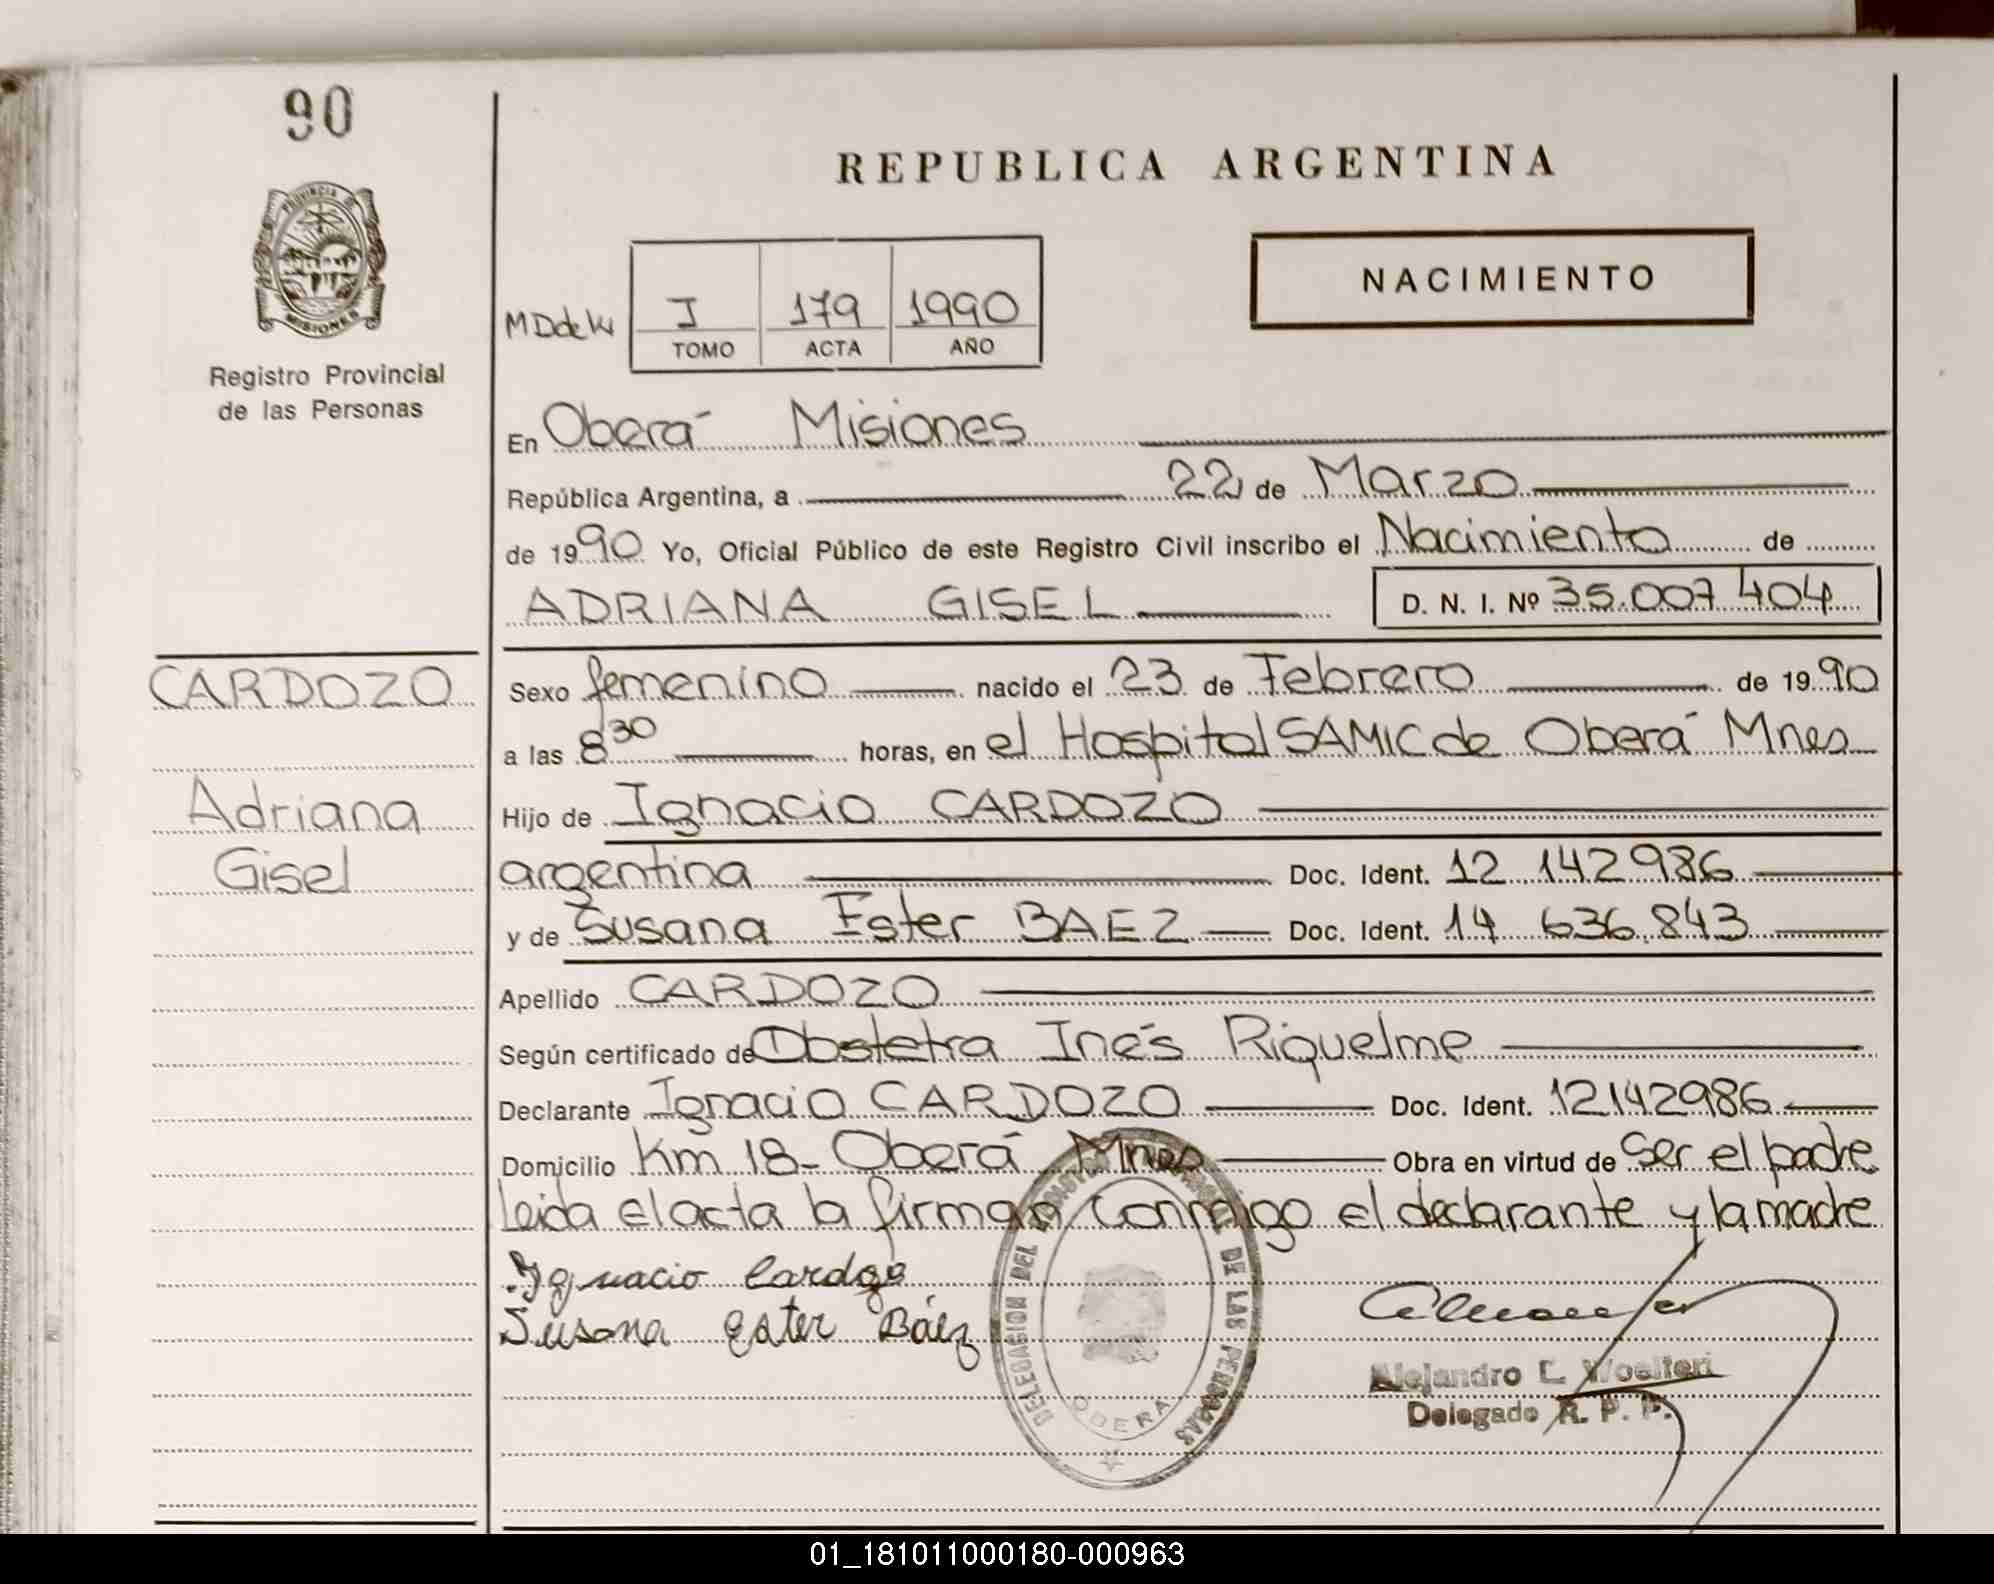 90
PROVINCIA DE
MISIONES
Registro Provincial
de las Personas
REPUBLICA ARGENTINA
NACIMIENTO
I 179 1990
TOMO ACTA AÑO
En Oberá Misiones
República Argentina, a 22 de Marzo
de 1990 Yo, Oficial Público de este Registro Civil inscribo el Nacimiento de
ADRIANA GISEL D. N. I. Nº 35.007 404
CARDOZO
Adriana
Gisel
Sexo femenino nacido el 23 de Febrero de 1990
a las 8 30 horas, en el Hospital SAMIC de Oberá Mnes
Hijo de Ignacio CARDOZO
argentina Doc. Ident. 12 142986
y de Susana Ester BAEZ Doc. Ident. 14 636.843
Apellido CARDOZO
Según certificado de Obstetra Inés Riquelme
Declarante Ignacio CARDOZO Doc. Ident. 12142986
Domicilio Km 18- Oberá Mnes Obra en virtud de Ser el padre
Leida el acta la firman conmigo el declarante y la madre
Ignacio Cardozo
Susana Ester Báez
DELEGACION DEL DE LAS PERSONAS
OBERA
Alejandro
Delegado R. P. P.
01_181011000180-000963